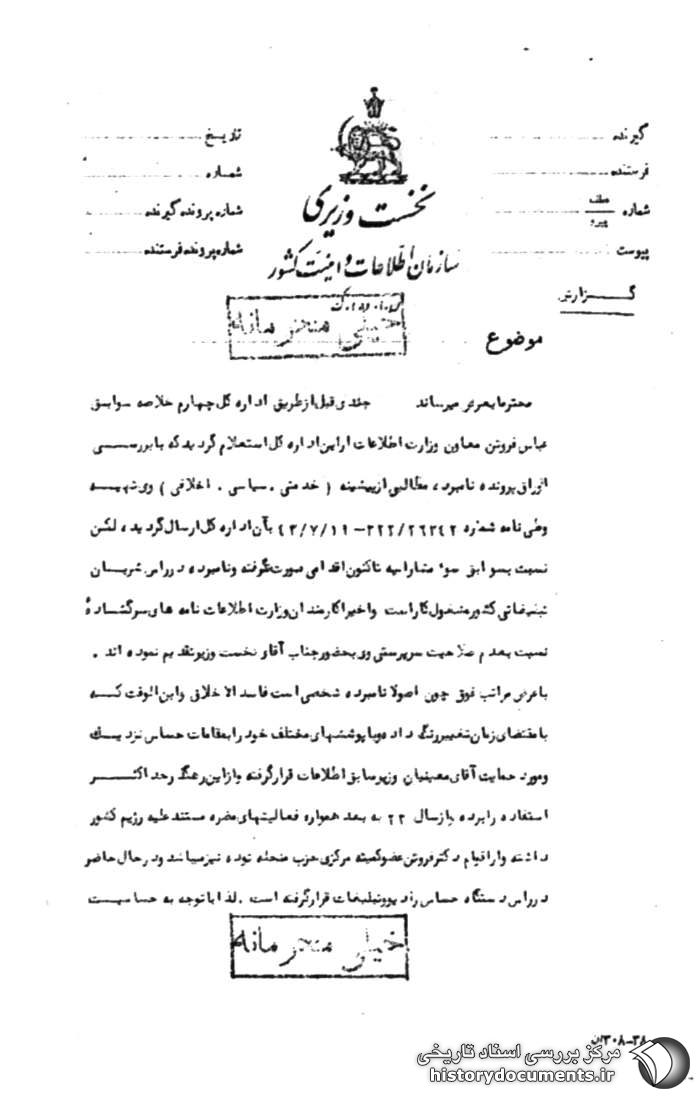 گیرنده
فرستنده
شماره عطف پیرو
پیوست
گــزارش
تاریخ
شماره
شماره پرونده گیرنده
شماره پرونده فرستنده
نخست وزیری
سازمان اطلاعات و امنیت کشور
خیلی محرمانه
موضوع
محترما بعرض میرساند چندی قبل از طریق اداره کل چهارم خلاصه سوابق
عباس فروتن معاون وزارت اطلاعات از این اداره کل استعلام گردید که با بررســی
اوراق پرونده نامبرده ، مطالبی از پیشینه ( خدمتی . سیاسی . اخلاقی ) وی تهیــه
وطی نامه شماره ۲۶۳۴۲/۳۲۲ – ۴۳/۷/۱۹ بآن اداره کل ارسال گردید ، لکن
نسبت بسوابق سوء مشارالیه تاکنون اقدامی صورت نگرفته و نامبرده در راس شریــان
تبلیغاتی کشور مشغول کار است و اخیرا کارمندان وزارت اطلاعات نامه های سرگشاده
نسبت بعدم صلاحیت سرپرستی وی بحضور جناب آقای نخست وزیر تقدیم نموده اند .
با عرض مراتب فوق چون اصولا نامبرده شخصی است فاسد الاخلاق و ابن الوقت کــه
با مقتضای زمان تغییر رنگ داده و با پوششهای مختلف خود را بمقامات حساس نزدیــک
و مورد حمایت آقای معینیان وزیر سابق اطلاعات قرار گرفته و از این رهگذر حد اکثــر
استفاده را برده و از سال ۳۲ به بعد همواره فعالیتهای مضره مستند علیه رژیم کشور
داشته و از اقوام دکتر فروتن عضو کمیته مرکزی حزب منحله توده نیز میباشد و در حال حاضر
در راس دستگاه حساس رادیو و تبلیغات قرار گرفته است . لذا با توجه به حساسیــت
خیلی محرمانه
۳۰۸–۳۸
مرکز بررسی اسناد تاریخی
historydocuments.ir